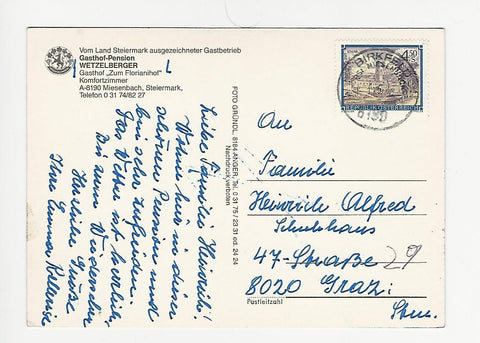 Vom Land Steiermark ausgezeichneter Gastbetrieb
Gasthof-Pension
WETZELBERGER
Gasthof „Zum Florianihof"
Komfortzimmer
A-8190 Miesenbach, Steiermark,
Telefon 0 31 74/82 27
Liebe Familie Heinrich!
Wohne hier in dieser
schönen Pension und
bin sehr zufrieden.
Das Wetter ist herrlich,
Bis zum Wiedersehn
Herzliche Grüsse
Ihre Emma
FOTO GRÜNDL, 8184 ANGER, Tel. 0 31 75 / 23 31 od. 24 24
Nachdruck verboten
4.50
REPUBLIK ÖSTERREICH
BIRKFELD
8190
An
Familie
Heinrich Alfred
47-Straße 29
8020 Graz
Postleitzahl
Stmk.